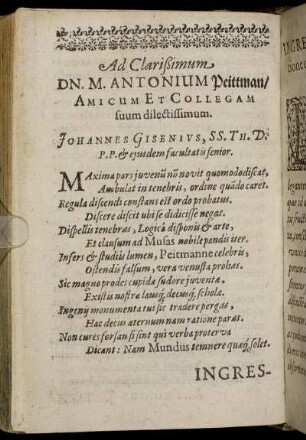 Ad Clarißimum
DN. M. ANTONIUM Peittman/
AMICUM ET COLLEGAM
suum dilectissimum.
JOHANNES GISENIVS, SS. TH. D.
P.P. & ejusdem facultatis senior.
MAxima pars juvenũ nõ novit quomodo discat,
Ambulat in tenebris, ordine quãdo caret.
Regula discendi constans est ordo probatus.
Discere discit ubi se didicisse negat.
Dispellis tenebras, Logicâ disponis & arte,
Et clausum ad Musas nobile pandis iter.
Insers & studiis lumen, Peitmanne celebris,
Ostendis falsum, vera venusta probas.
Sic magno prodes cupidæ sudore juventæ,
Existis nostræ lausq́; decusq́; scholæ.
Ingenij monumenta tui sic tradere pergas,
Hac decus æternum nam ratione paras.
Non cures forsan si sint qui verba proterva
Dicant: Nam Mundus temnere quæq́; solet.
INGRES-
INGRE